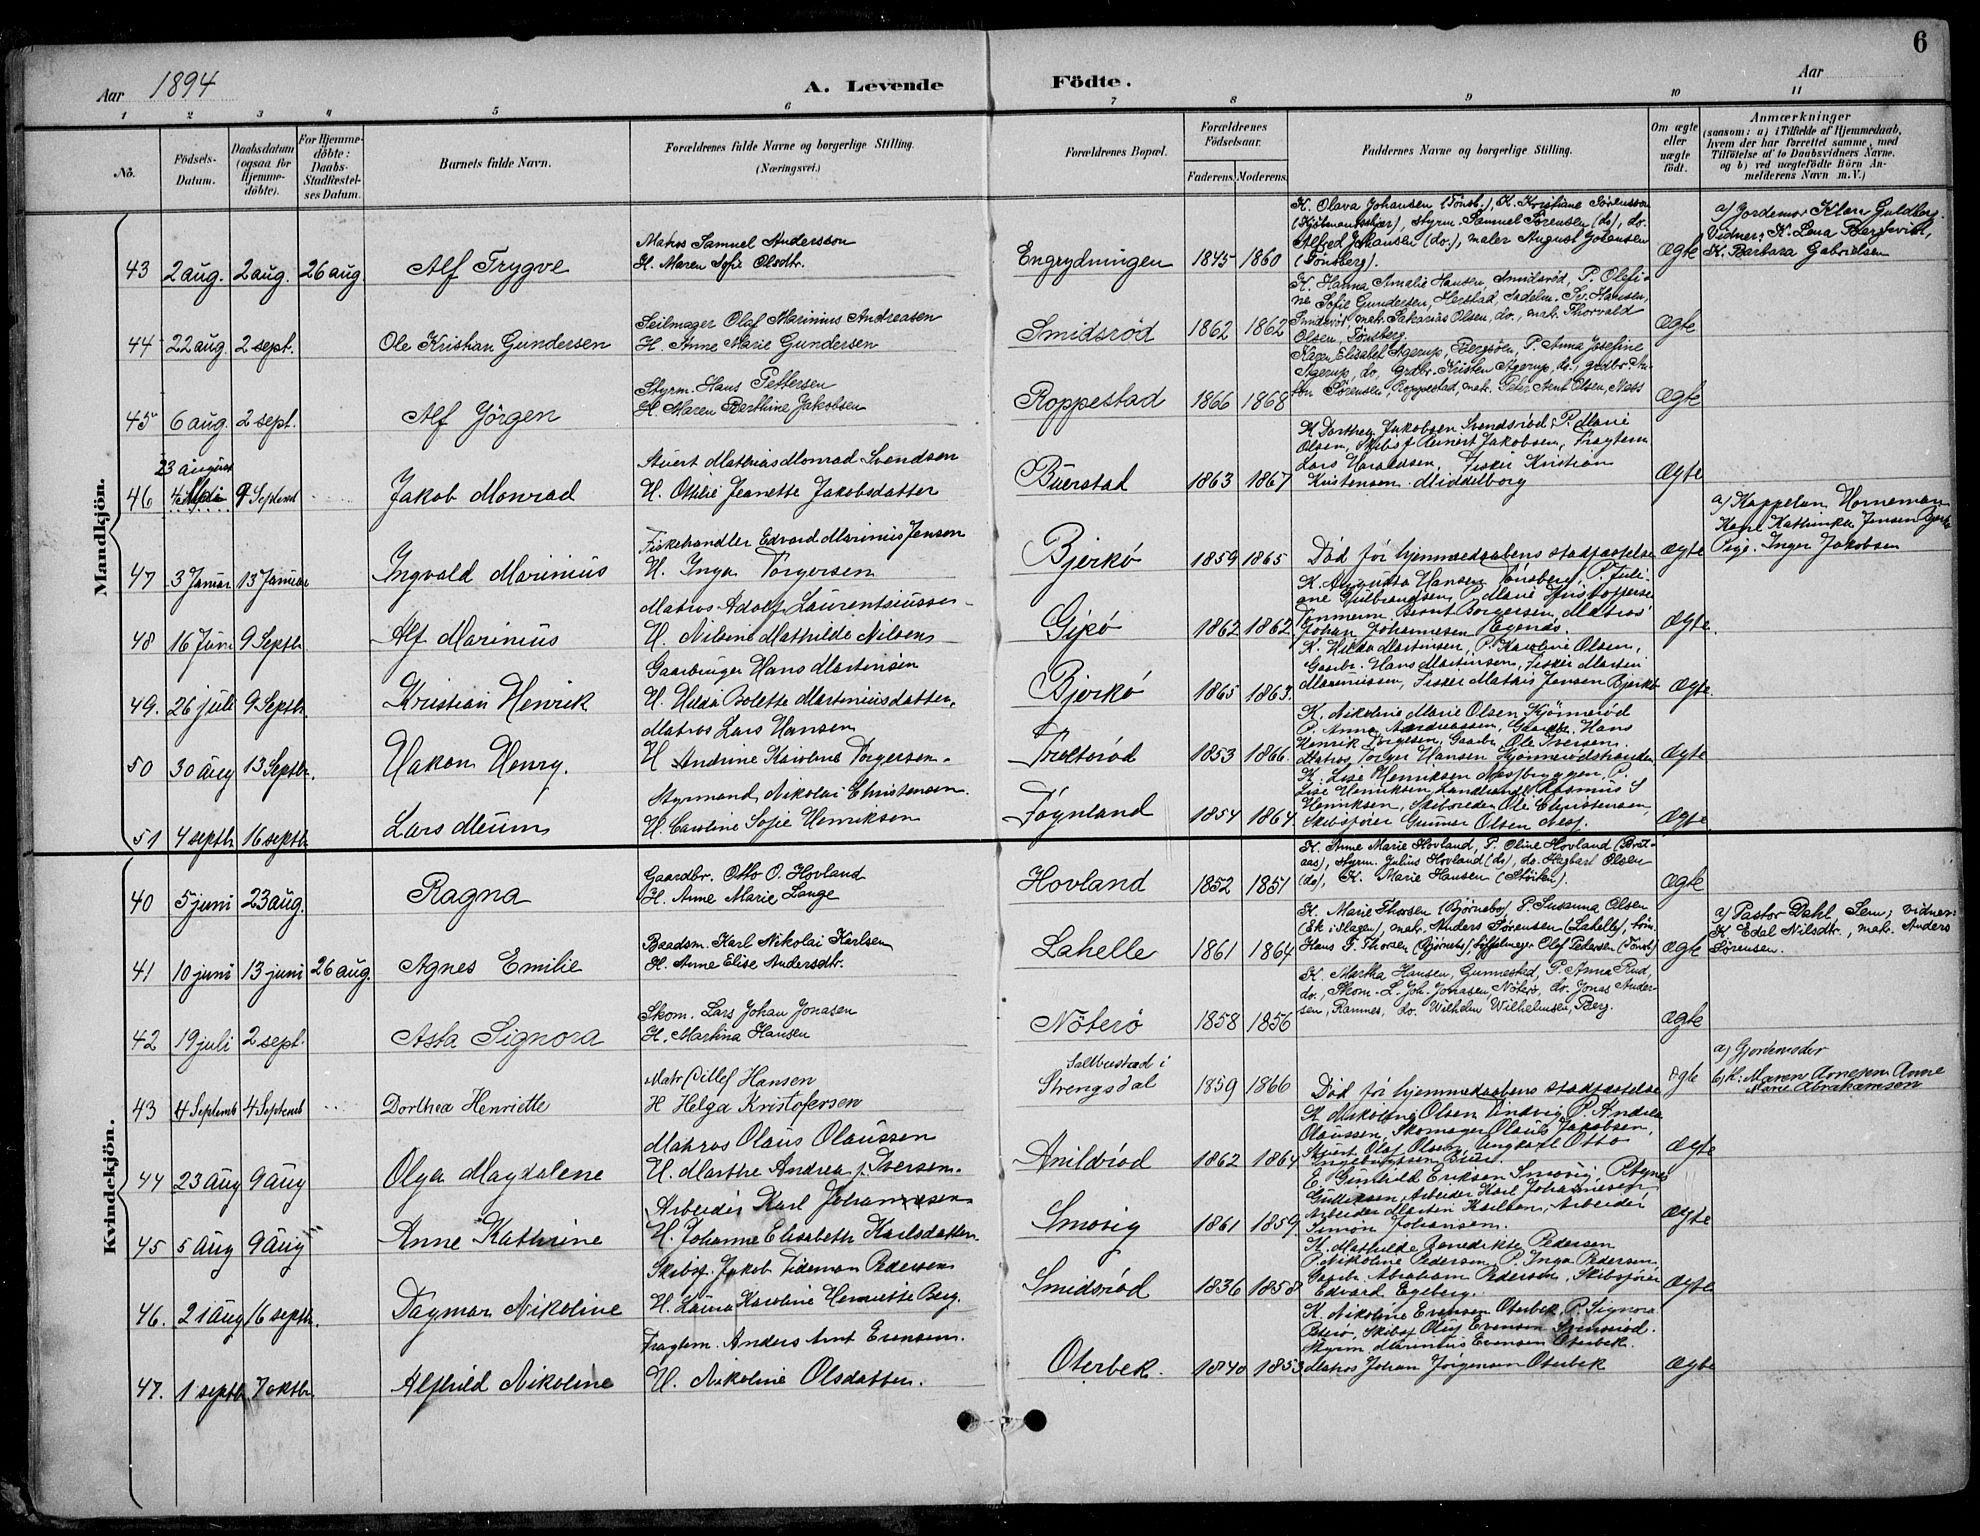 6
Aar 1894
A. Levende Födte.
Aar
1 2 3 4 5 6 7 8 9 10 11
No.
Födsels-
Datum.
Daabsdatum
(ogsaa for
Hjemme-
döbte).
For Hjemme-
döbte:
Daabs-
Stadfæstel-
ses Datum.
Barnets fulde Navn.
Forældrenes fulde Navne og borgerlige Stilling.
(Næringsvei.)
Forældrenes Bopæl.
Forældrenes
Födselsaar.
Faderens. Moderens.
Faddernes Navne og borgerlige Stilling.
Om ægte
eller
uægte
födt.
Anmærkninger
(saasom: a) i Tilfælde af Hjemmedaab,
hvem der har forrettet samme, med
Tilföielse af to Daabsvidners Navne.
og b) ved uægtefödte Börn An-
melderens Navn m.V.)
Mandkjön.
43 2 aug. 2 aug. 26 aug Alf Trygve
Matros Samuel Andersson
H. Maren Sofie Olsdtr.
Engrydningen 1845 1860
K. Olava Johansen (Tönsb.), K. Kristiane Sörensson
styrm. Samuel Sörensen (do), do.
Alfred Johansen (do.), maler August Johansen
(Tönsberg).
Ægte
a) Jordemor Klara Guldberg.
Vidner: K. Lena Bergsvik,
K. Barbara Gabrielsen
44 22 aug 2 sept. Ole Kristian Gundersen
Seilmager Olaf Marinius Andreasen
H. Anne Marie Gundersen
Smidsrød 1862 1862
K. Hanna Amalie Hansen, Smidsröd, P. Olefi-
ne Sofie Gundersen, Herstad, Sadelm. Sv. Hansen,
Smidsröd, mat. Sakarias Olsen, do., mat. Thorvald
Olsen, Tönsberg.
Ægte
45 6 aug. 2 sept. Alf Jörgen
Styrm. Hans Pettersen
H. Maren Berthine Jakobsen
Roppestad 1866 1868
Karen Elisabet Agerup, Bergsöen, P. Anna Josefine
Agerup, do, grdbr. Kristen Agerup, do., grdbr. An-
ton Sörensen, Roppestad, mat. Peter Arnt Olsen, Næss
Ægte
23 august
46 9 Septemb Jakob Monrad
Stuert Mathias Monrad Svendsen
H. Otilie Jeanette Jakobsdatter
Buerstad 1863 1867
K. Dorthea Jakobsen Svendsröd, P. Marie
Olsen, Skibsf Reinert Jakobsen, Fragtem
Lars Haraldsen, Fisker Kristian
Kristensen Middelborg
Ægte
47 3 Januar 13 Januar Ingvald Marinius
Fiskehandler Edvard Marinius Jensen
H. Inga Torgersen
Bjerkö 1859 1865
Død før hjemmedaabens stadfæstelse
Ægte
a) Kappelan Horneman
Kone Kathinka Jensen
Pige Inger Jakobsen
48 16 Juni 9 Septbr. Alf Marinius
Matros Adolf Laurentsiussen
H. Nilsine Mathilde Nilsen
Gipö 1862 1862
K. Augusta Hansen Tönsberg, P. Juli-
ane Gulbrandsen, P. Marie Kristoffersen
Tömmerm. Bernt Borgersen, Matros
Johan Johannesen Egenæs.
Ægte.
49. 26 juli 9 Septbr. Kristian Henrik
Gaarbruger Hans Martensen
H. Hilda Bolette Marteniusdatter.
Bjerkö 1865 1863.
K. Hilda Martinsen, P. Karoline Olsen,
Gaarbr. Hans Martinsen, Fisker Martin
Marinussen, Fisker Mathis Jensen Bjerkö
Ægte.
50 30 aug 13 Septbr. Hakon Henry.
Matros Lars Hansen
H Andrine Karoline Torgersen.
Tveterød 1853 1866.
K. Nikoline Marie Olsen Kjönneröd
P. Anne Andreassen, Gaardbr. Hans
Henrik Torgesen, Gaarbr. Ole Iversen.
Matros Torger Hansen Kjönnerödstranden
Ægte
51 4 septbr 16 septbr. Lars
Styrmand Nikolai Christensen.
H. Caroline Sofie Henriksen
Føynland 1854 1864.
K. Lise Henriksen Næsbryggen, P.
Lise Henriksen, Landhandl. Rasmus S
Henriksen, Skibsreder Ole Christensen,
Skibsfører Gunner Olsen Næs.
Ægte.
Kvindekjön.
40 5 juni 23 aug. Ragna
Gaardbr. Otto O. Hovland
H. Anne Marie Lange
Hovland 1852 1851
K. Anne Marie Hovland, P. Oline Hovland (Bret-
aas), styrm. Julius Hovland (do), do. Hagbart Olsen
(do), K. Marie Hansen
Ægte
41 10 juni 13 juni 26 aug. Agnes Emilie
Baadsm. Karl Nikolai Karlsen
H. Anne Elise Andersdtr.
Lahelle 1861 1864
K. Marie Thorsen (Björnebo), P. Susanna Olsen
(Ek i Slagen), mat. Anders Sörensen (Lahelle), töm.
Hans F. Thorsen Olof Pedersen (Tönsb)
Ægte
a) Pastor Dahl, Sem; vidner:
K. Edel Nilsdtr., mat. Anders
Sörensen.
42 19 juli 2 sept. Asta Signora
Skom. Lars Johan Jonasen
H. Martina Hansen
Nöterö 1858 1856
K. Martha Hansen, Gunnestad, P. Anna Rud,
do., Skom. L. Joh. Jonasen, Nöterö, do. Jonas Ander-
sen, Ramnes, do. Wilhelm Wilhelmsen, Berg.
Ægte
43 4 Septemb 4 Septemb Dorthea Henriette
Matr Ditlef Hansen
H Helga Kristofersen
Saltbustad i
Strengsdal 1859 1866
Død før hjemmedaabens stadfæstelse
Ægte
a) Gjordemoder
b) K: Maren Arnesen Anne
Marie Abrahamsen
44 23 Aug 9 Aug Olga Magdalene
Matros Olaus Olaussen
H. Marthe Andrea f. Iversen.
Anildrød 1862 1864
K Nikoline Olsen Tindvig, P. Andrea
Olaussen, Skomager Olaus Jakobsen,
Stuert Olaf Olsen, Ungkarl Otto
Ægte
45 5 Aug 9 Aug Anne Kathrine
Arbeider Karl Johannesen
H. Johanne Elisabeth Karlsdatter.
Smovig 1861 1859.
E. Gunhild Eriksen Smovig, P. Agnes
Gulliksen, Arbeider Karl Johannesen
Arbeider Martin Karlsen, Arbeider
Simon Johansen.
Ægte
46. 21 aug 16 septbr. Dagmar Nikoline
Skibsf. Jakob Tideman Pedersen
H. Laura Karoline Henriette Berg.
Smidsrød 1836 1858
K. Mathilde Benedikte Pedersen
P. Nikoline Pedersen, P. Inga Pedersen,
Gaarbr. Abraham Pedersen, Skibsfører
Edvard Egeberg.
Ægte
47. 1 septbr. 7 oktbr. Alfhild Nikoline
Fragtem. Anders Arnt Evensen.
H. Nikoline Olsdatter.
Oterbek. 1840 1853
K. Nikoline Evensen Oterbek, P. Signora
Skibsf Oluf Evensen
Styrm. Marentius Evensen Oterbek.
Matros Johan Jörgensen Oterbek
Ægte